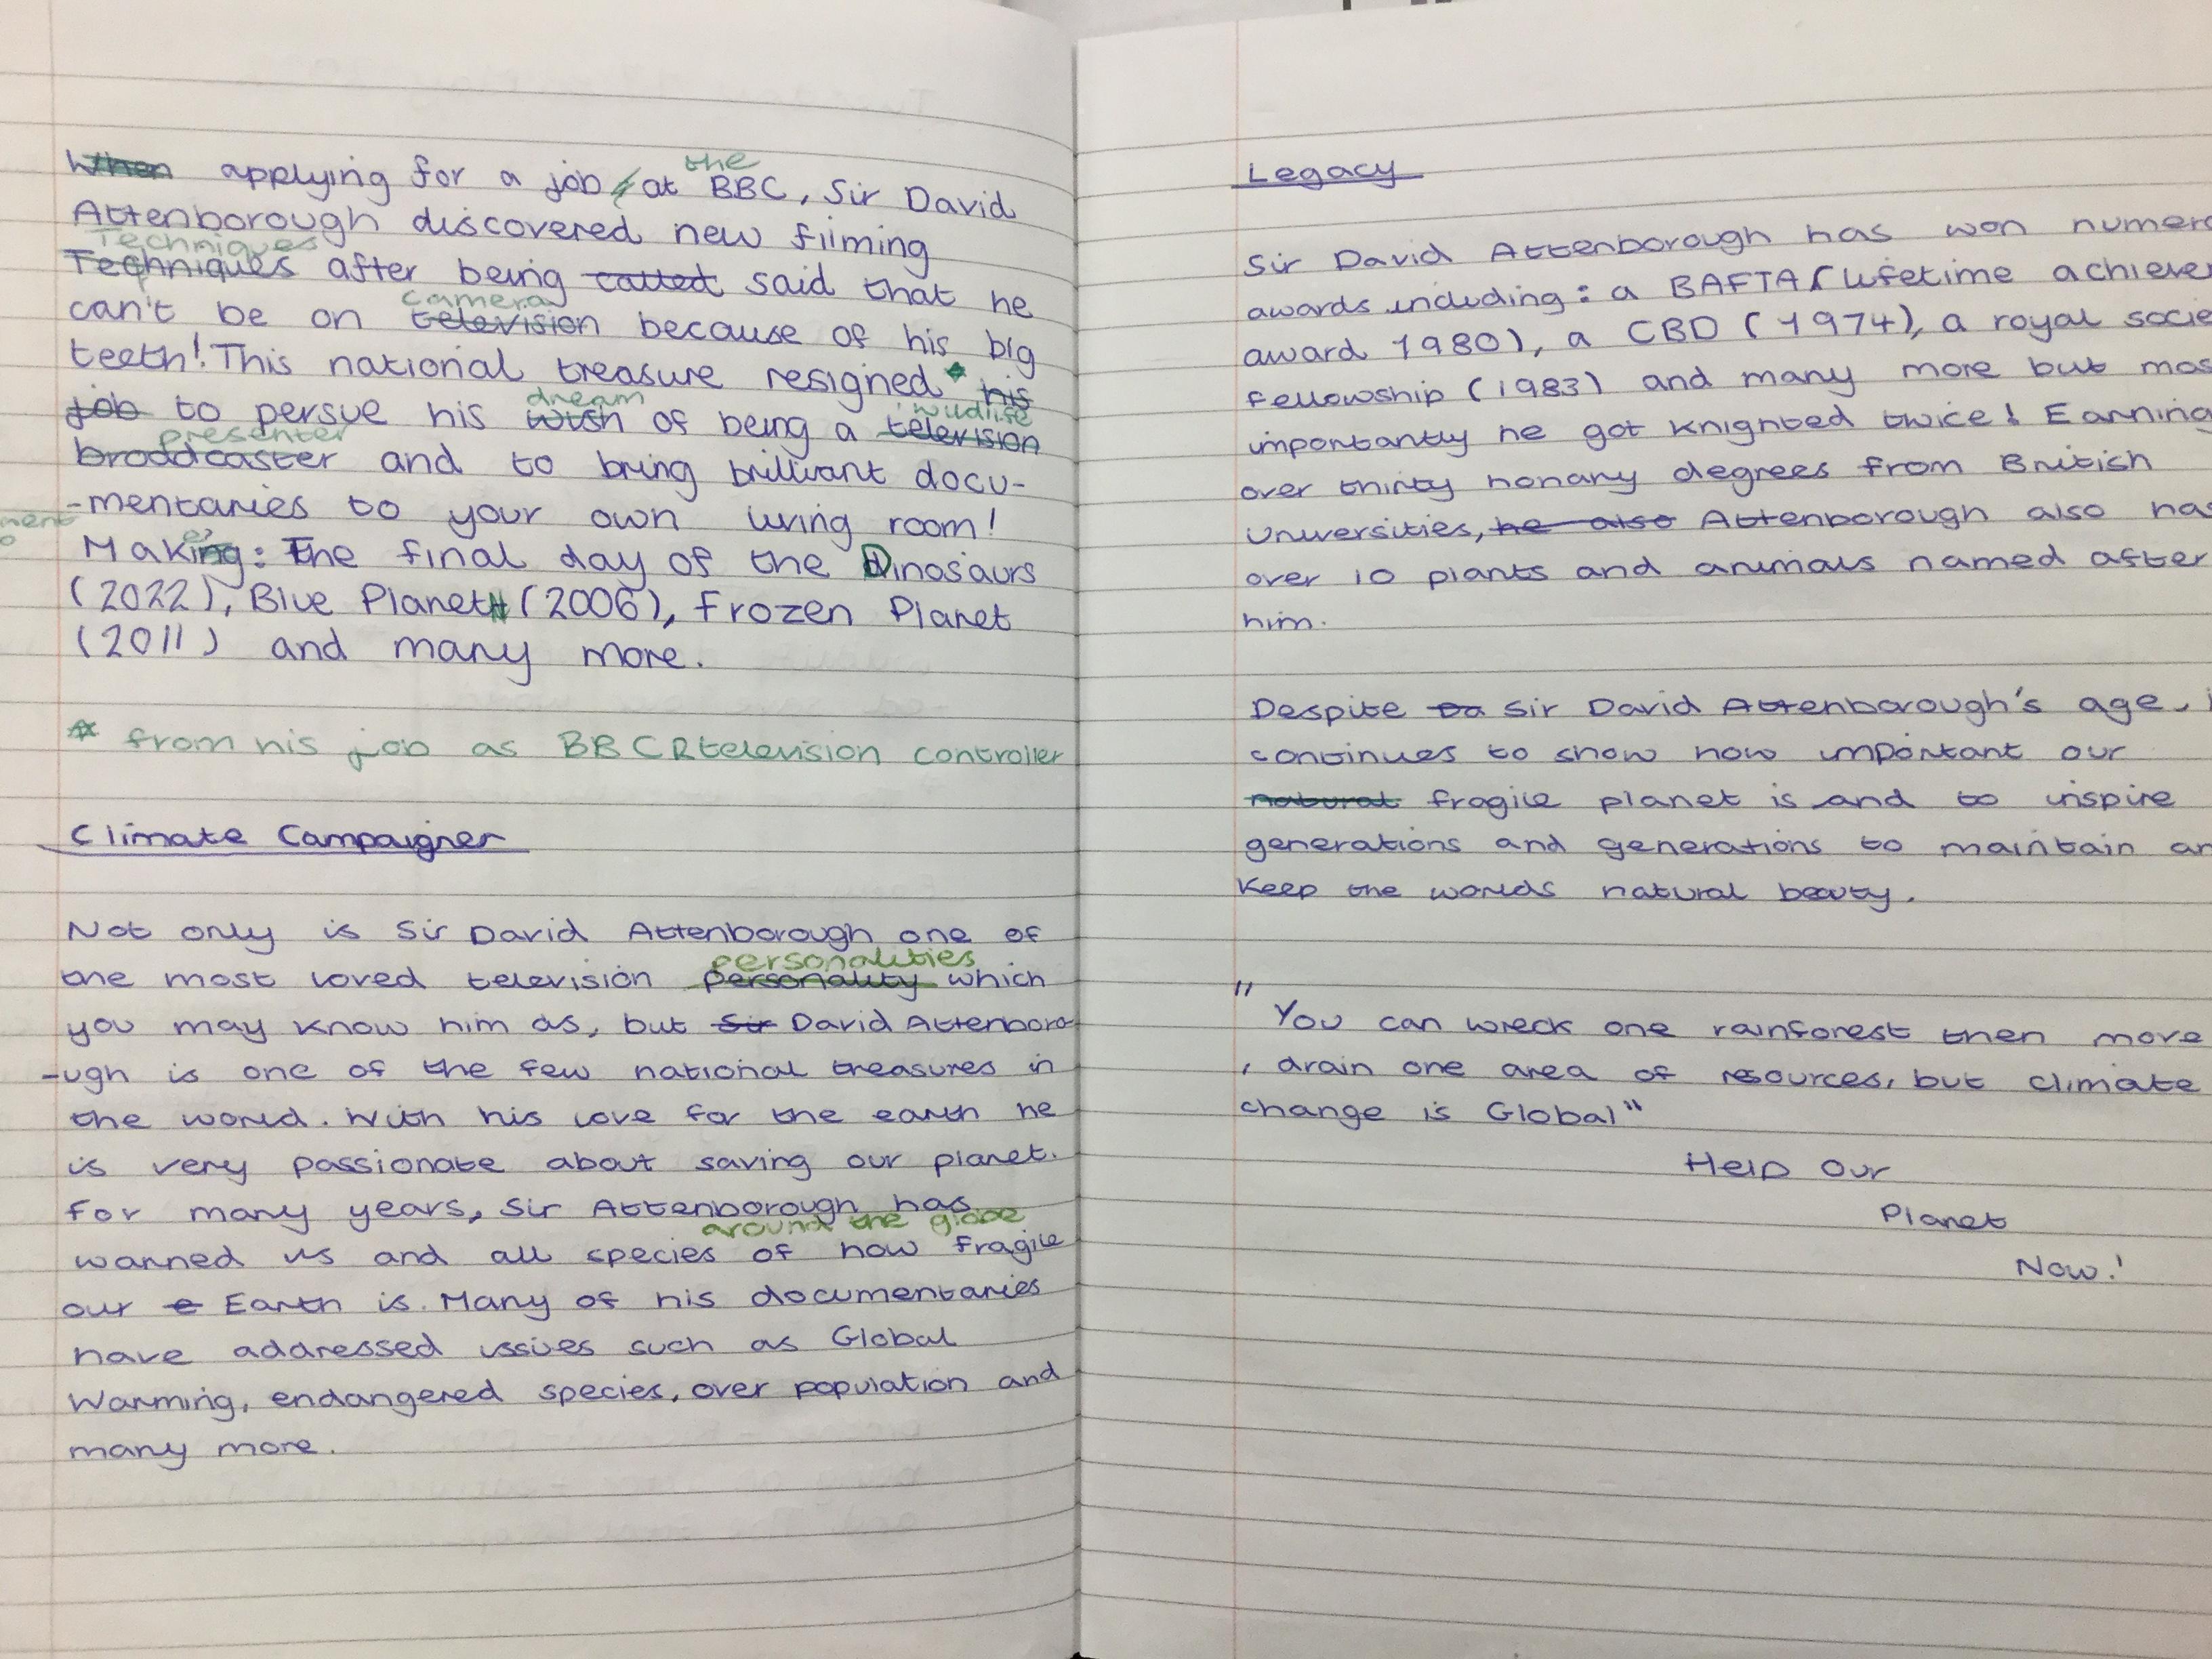 When applying for a job at the BBC, Sir David
Attenborough discovered new filming
Techniques
Techniques after being called said that he
camera
can't be on television because of his big
teeth! This national treasure resigned * his
dream wildlife
job to persue his wish of being a television
presenter
broadcaster and to bring brilliant docu-
-mentaries to your own living room!
Making: The final day of the Dinosaurs
(2022), Blue Planet (2006), Frozen Planet
(2011) and many more.
* from his job as BBC television controller
Climate Campaigner
Not only is Sir David Attenborough one of
personalities
the most loved television personality which
you may know him as, but Sir David Attenboro
-ugh is one of the few national treasures in
the world. With his love for the earth he
is very passionate about saving our planet.
For many years, Sir Attenborough has
around the globe
warned us and all species of how fragile
our e Earth is. Many of his documentaries
have addressed issues such as Global
Warming, endangered species, over population and
many more.
Legacy
Sir David Attenborough has won numero
awards including: a BAFTA (Lifetime achieve
award 1980), a CBD (1974), a royal socie
fellowship (1983) and many more but mos
importantly he got knighted twice! Earning
over thirty honary degrees from British
Universities, he also Attenborough also has
over 10 plants and animals named after
him.
Despite Da Sir David Attenborough's age,
continues to show how important our
natural fragile planet is and to inspire
generations and generations to maintain an
Keep the worlds natural beauty.
"You can wreck one rainforest then move
, drain one area of resources, but climate
change is Global"
Help Our
Planet
Now!